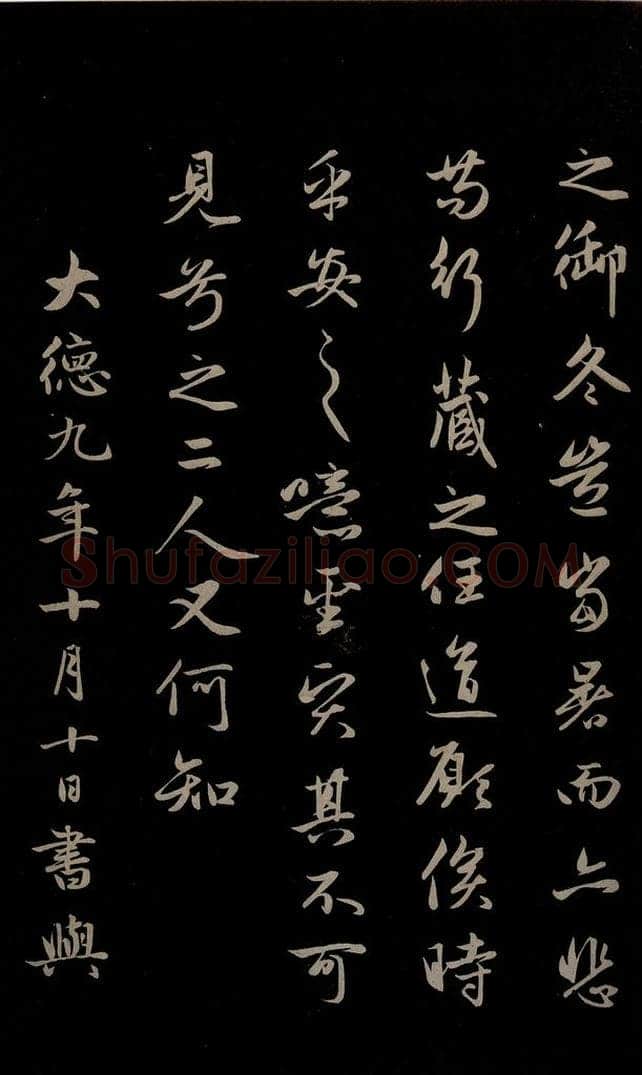 之御冬豈當暑而亦悲
苟行藏之任道願俟時
乎安之噫聖賢其不可
見兮之二人又何知
大德九年十月十日書與
Shufaziliao.COM